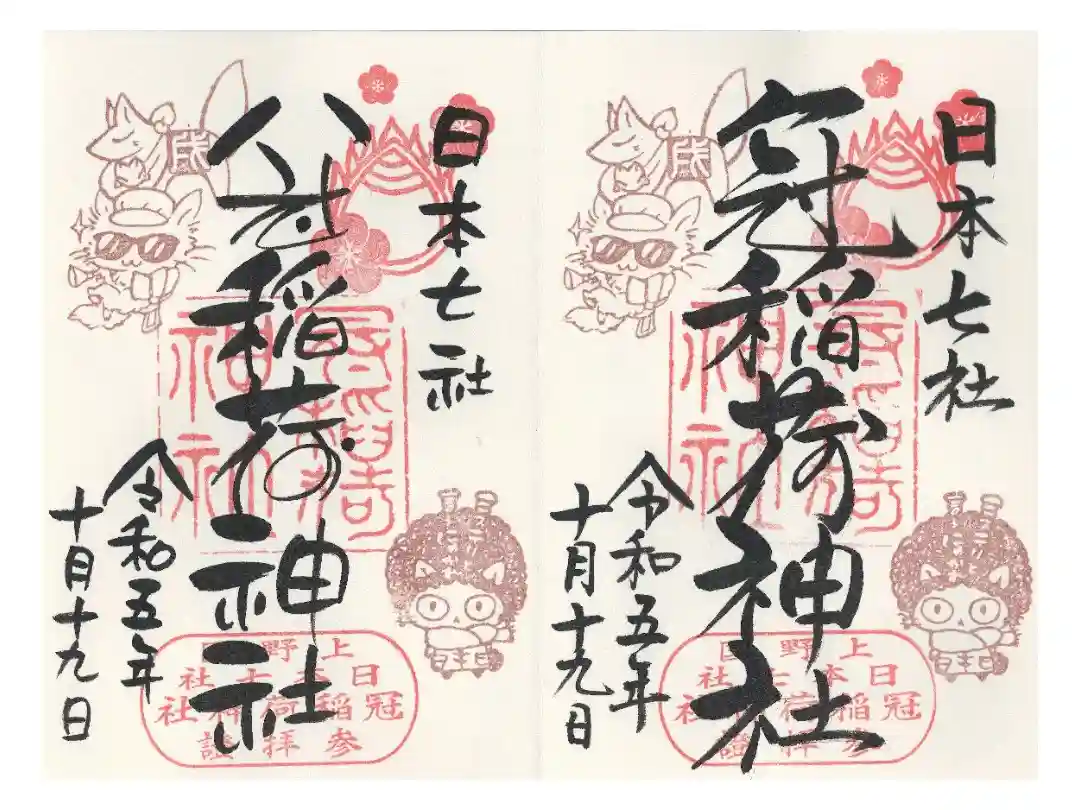 日本七社
冠稲荷神社
令和五年
十月十九日
上野国
日本七社
冠稲荷神社
参拝證
日本七社
冠稲荷神社
令和五年
十月十九日
上野国
日本七社
冠稲荷神社
参拝證